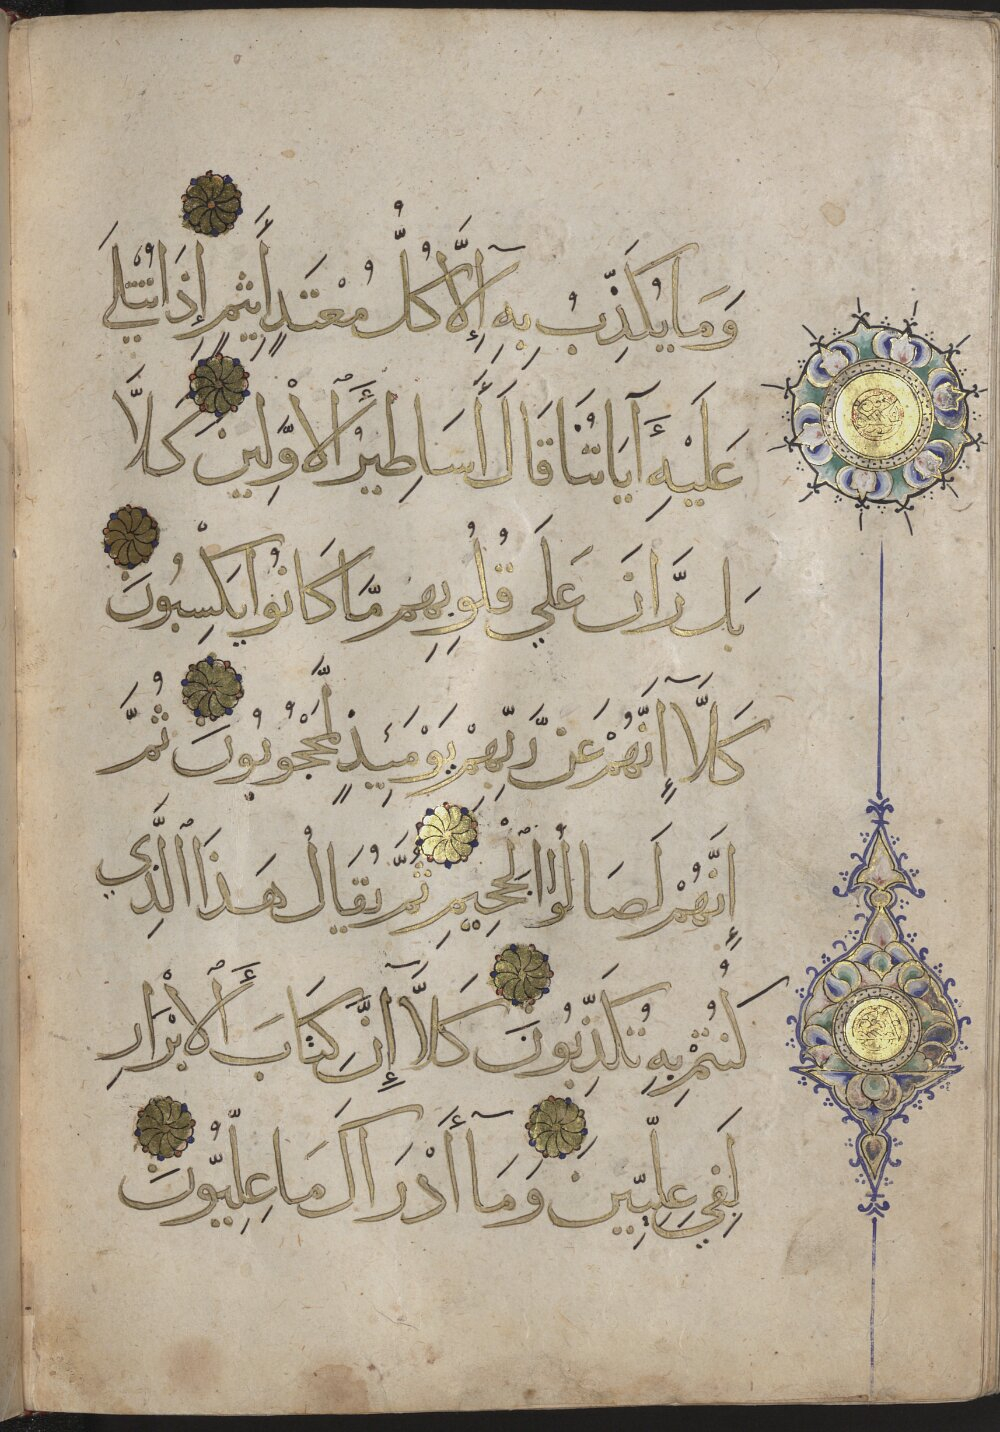 وَمَا يُكَذِّبُ بِهِ إِلَّا كُلُّ مُعْتَدٍ أَثِيمٍ إِذَا تُتْلَىٰ
عَلَيْهِ آيَاتُنَا قَالَ أَسَاطِيرُ الْأَوَّلِينَ كَلَّا
بَل رَّانَ عَلَي قُلُوبِهِم مَّا كَانُوا يَكْسِبُونَ
كَلَّا إِنَّهُمْ عَن رَّبِّهِمْ يَوْمَئِذٍ لَّمَحْجُوبُونَ ثُمَّ
إِنَّهُمْ لَصَالُوا الْجَحِيمِ ثُمَّ يُقَالُ هَذَا الَّذِي
كُنتُمْ بِهِ تُكَذِّبُونَ كَلَّا إِنَّ كِتَابَ الْأَبْرَارِ
لَفِي عِلِّيِّينَ وَمَا أَدْرَاكَ مَا عِلِّيُّونَ